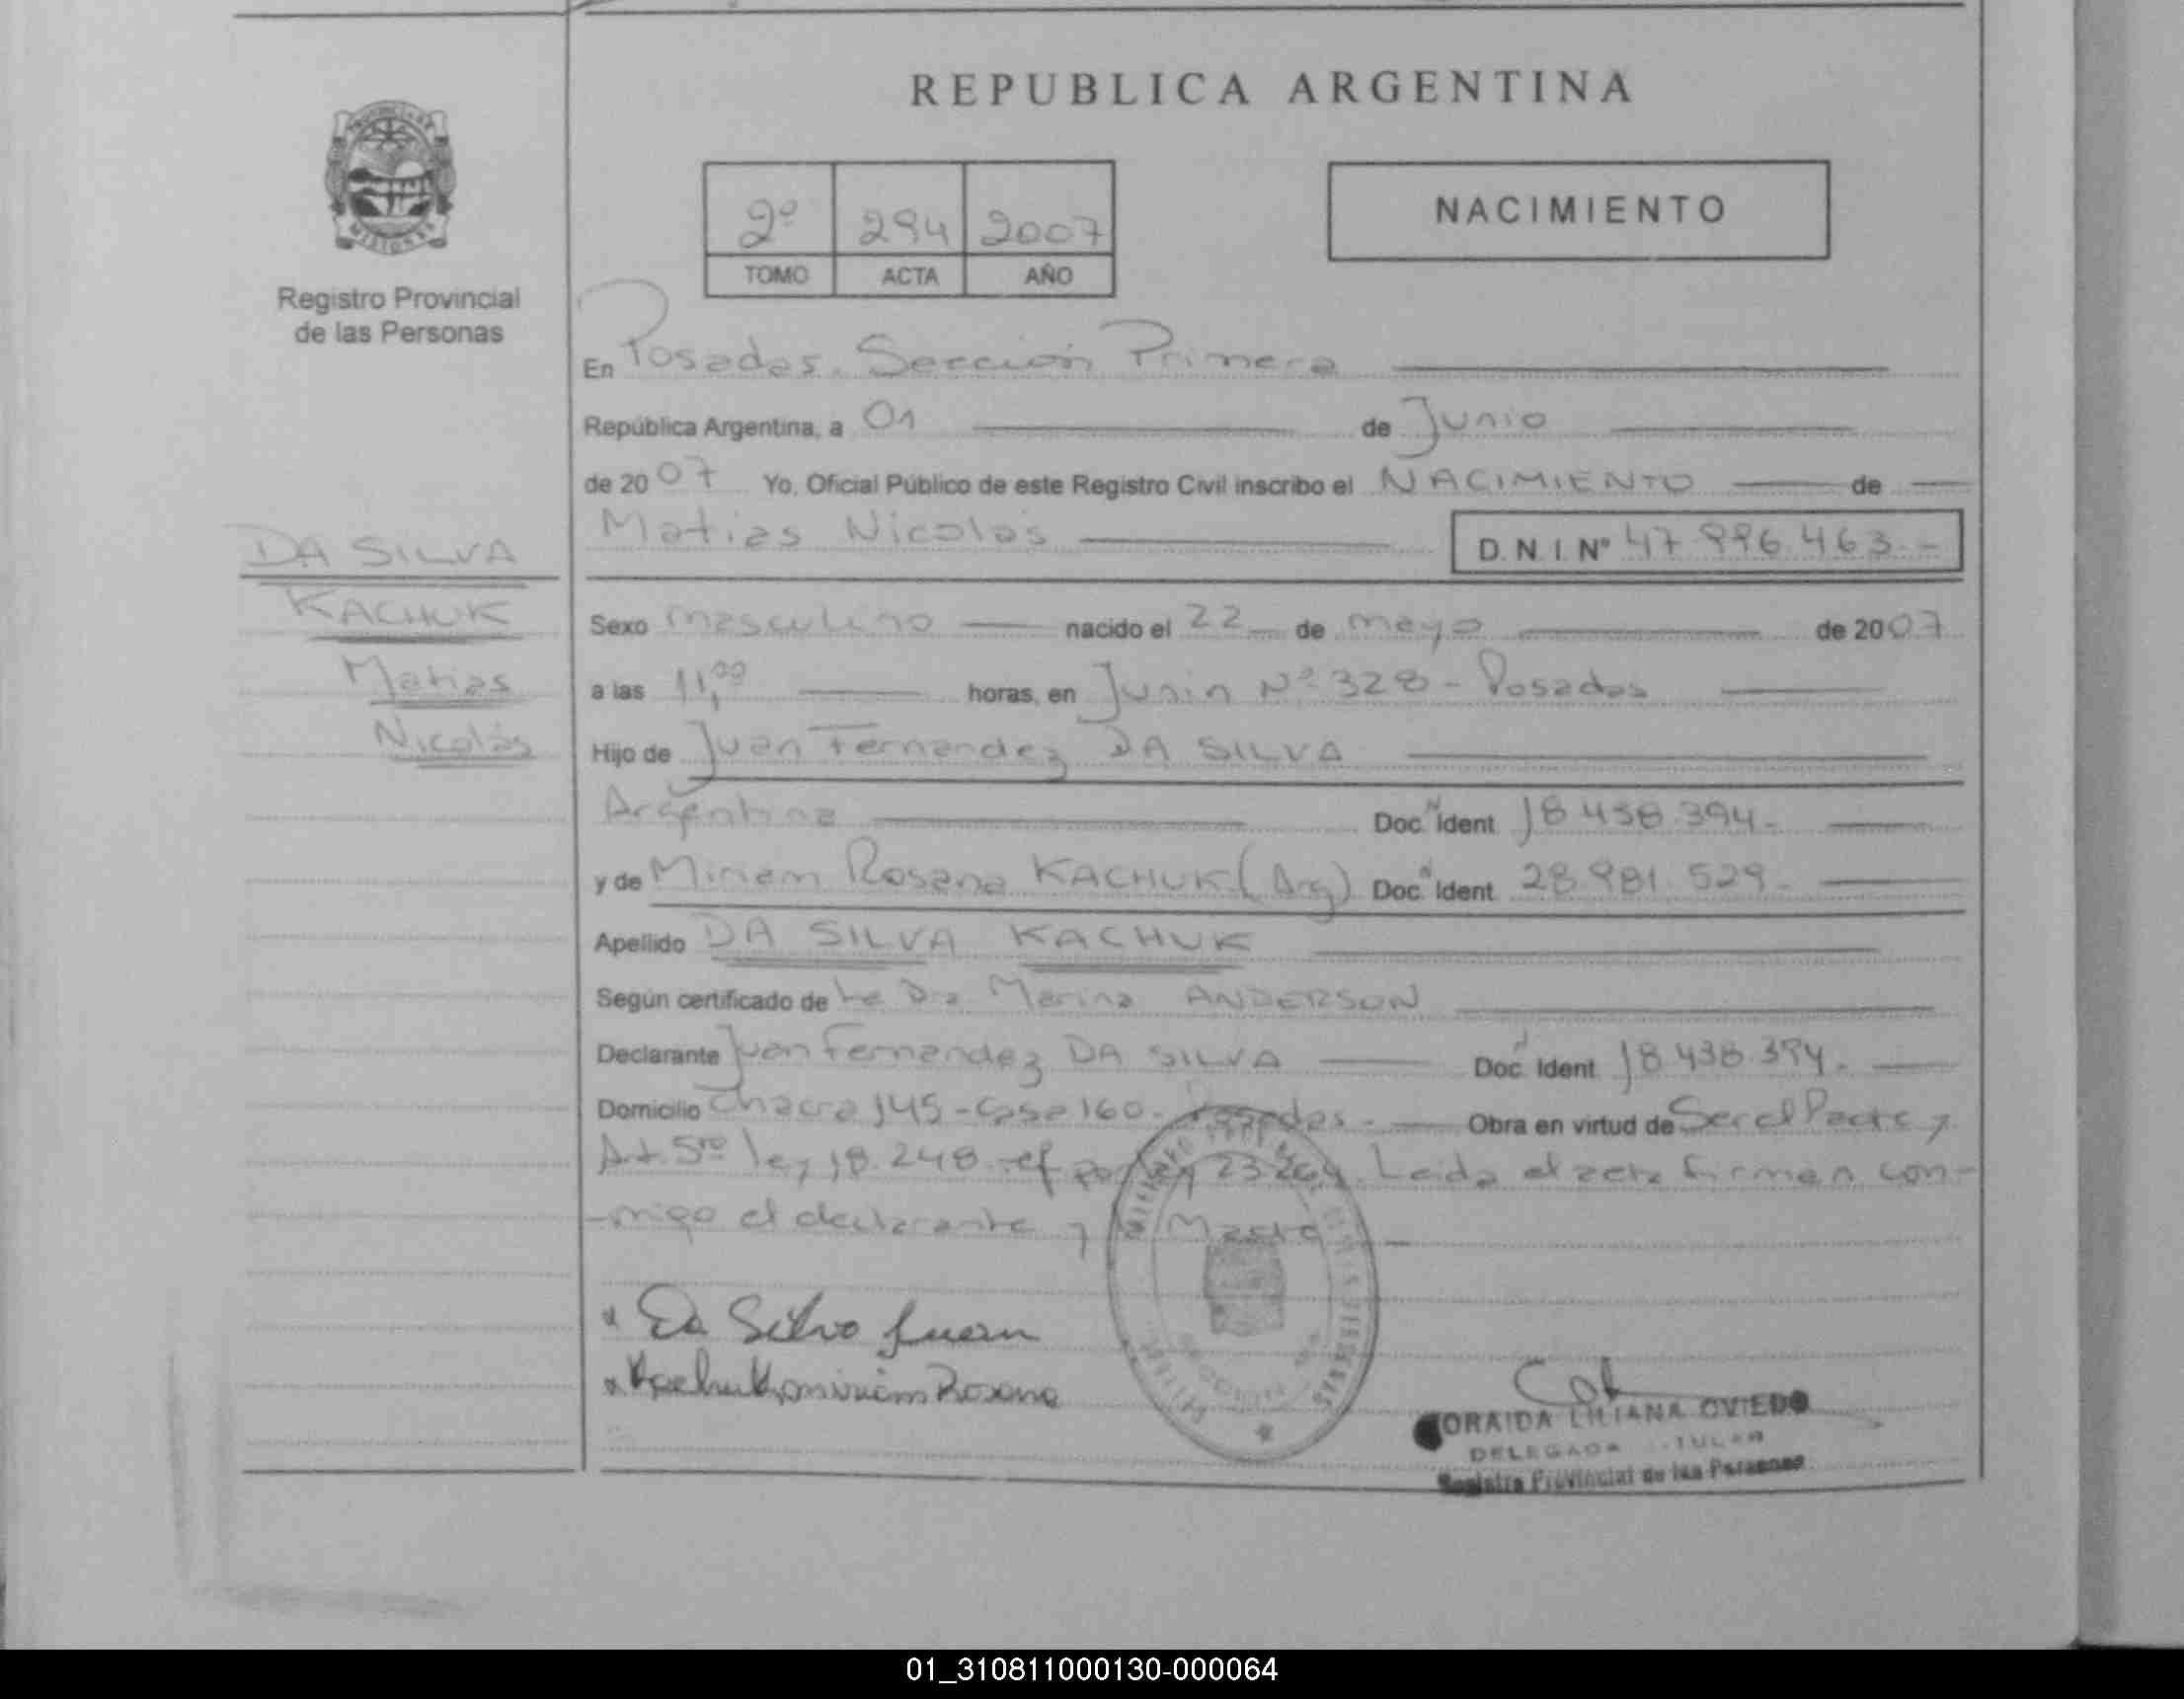 REPUBLICA ARGENTINA
2º 294 2007
TOMO ACTA AÑO
NACIMIENTO
MISIONES
Registro Provincial
de las Personas
En Posadas. Sección Primera
República Argentina, a 01 de Junio
de 2007 Yo, Oficial Público de este Registro Civil inscribo el NACIMIENTO de
Matias Nicolás D.N.I. Nº 47.996.463.-
DA SILVA
KACHUK
Matias
Nicolás
Sexo masculino nacido el 22 de mayo de 2007
a las 11,00 horas, en Junin Nº 328 - Posadas
Hijo de Juan Fernandez DA SILVA
Argentina Doc. Ident. 18.438.394.-
y de Miriam Rosana KACHUK (Arg) Doc. Ident. 28.981.529.-
Apellido DA SILVA KACHUK
Según certificado de la Dra Marina ANDERSON
Declarante Juan Fernandez DA SILVA Doc. Ident. 18.438.394.-
Domicilio Chacra 145 - Casa 160 - Posadas - Obra en virtud de Ser el Padre y
Art. 5to ley 18.248 ref por ley 23.264. Leida el acta firman con-
-migo el declarante y la Madre
Da Silva Juan
Kachuk miriam Rosana
ORAIDA LILIANA OVIEDO
DELEGADA TITULAR
Registro Provincial de las Personas
01_310811000130-000064